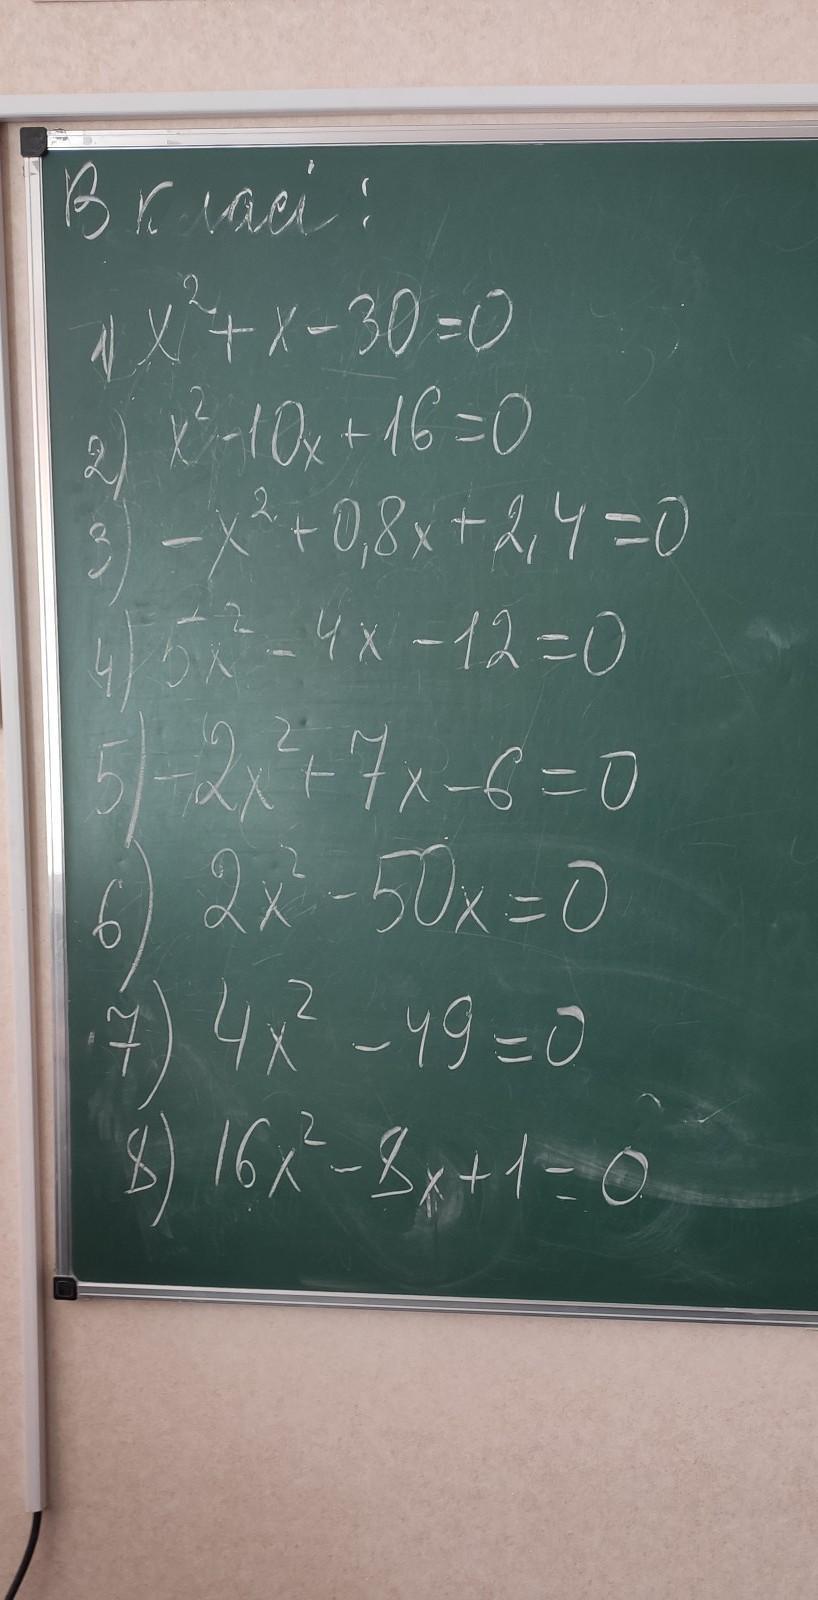 В класі:
1) x² + x - 30 = 0
2) x² - 10x + 16 = 0
3) -x² + 0,8x + 2,4 = 0
4) 5x² - 4x - 12 = 0
5) -2x² + 7x - 6 = 0
6) 2x² - 50x = 0
7) 4x² - 49 = 0
8) 16x² - 8x + 1 = 0